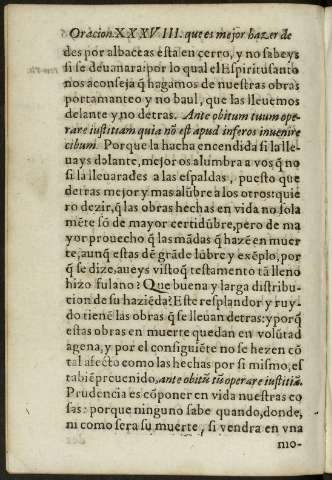 Oracion XXXVIII. que es mejor hazer de
des por albaceas esta en cerro, y no sabeys
si se deuanara: por lo qual el Espiritusanto
nos aconseja q̃ hagamos de nuestras obras
portamanteo y no baul, que las lleuemos
delante y no detras. Ante obitum tuum ope-
rare iustitiam quia nõ est apud inferos inuenire
cibum. Porque la hacha encendida si la lle-
uays dolante, mejor os alumbra a vos q̃ no
si la lleuarades a las espaldas, puesto que
detras mejor y mas alũbre a los otros: quie
ro dezir, q̃ las obras hechas en vida no sola
mẽte sõ de mayor certidũbre, pero de ma
yor prouecho q̃ las mãdas q̃ hazẽ en muer
te, aunq̃ estas dẽ grãde lũbre y exẽplo, por
q̃ se dize, aueys visto q̃ testamento tã lleno
hizo fulano? Que buena y larga distribu-
cion de su haziẽda? Este resplandor y ruy-
do tienẽ las obras q̃ se lleuan detras: y porq̃
estas obras en muerte quedan en volũtad
agena, y por el consiguiẽte no se hezen cõ
tal afecto como las hechas por si mismo, es
tabiẽ preuenido, ante obitũ tũ operare iustitiã.
Prudencia es cõponer en vida nuestras co
sas: porque ninguno sabe quando, donde,
ni como sera su muerte, si vendra en vna
mo-